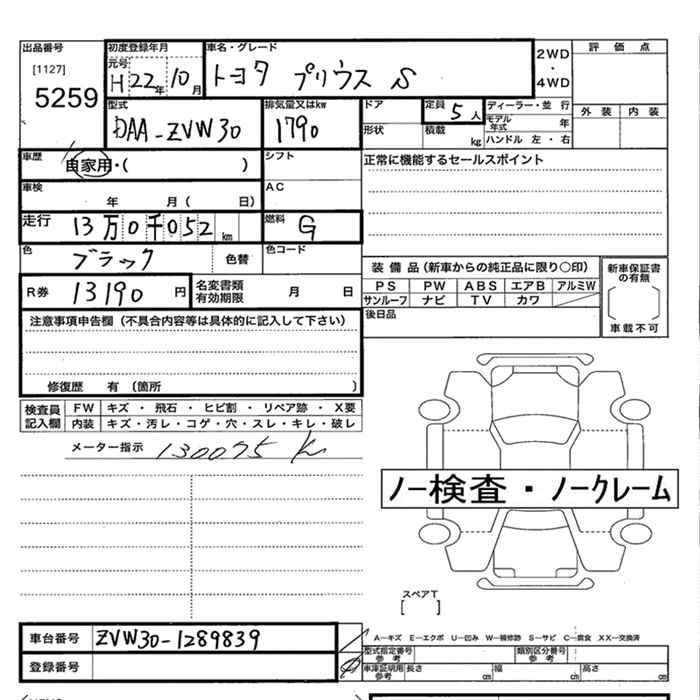 出品番号
[1127]
5259
初度登録年月
元号
H 22年 10月
車名・グレード
トヨタ プリウス S
2WD
・
4WD
評価点
外装 内装
型式
DAA-ZVW30
排気量又はkw
1790
ドア
定員 5人
ディーラー・並行
モデル年式 年
形状
積載 kg
ハンドル 左・右
車歴
自家用・( )
シフト
正常に機能するセールスポイント
車検
年 月( 日)
AC
走行
13万0千052km
燃料
G
色
ブラック
色替
色コード
装備品(新車からの純正品に限り○印)
新車保証書の有無
PS PW ABS エアB アルミW
サンルーフ ナビ TV カワ
車載不可
R券 13190円
名変書類有効期限 月 日
後日品
注意事項申告欄(不具合内容等は具体的に記入して下さい)
修復歴 有(箇所 )
検査員記入欄
FW キズ・飛石・ヒビ割・リペア跡・X要
内装 キズ・汚レ・コゲ・穴・スレ・キレ・破レ
メーター指示 130075 K
ノー検査・ノークレーム
スペアT
[ ]
車台番号 ZVW30-1289839
A−キズ E−エクボ U−凹み W−補修跡 S−サビ C−腐食 XX−交換済
型式指定番号参考
類別区分番号参考
登録番号
車庫証明用参考 長さ cm 幅 cm 高さ cm